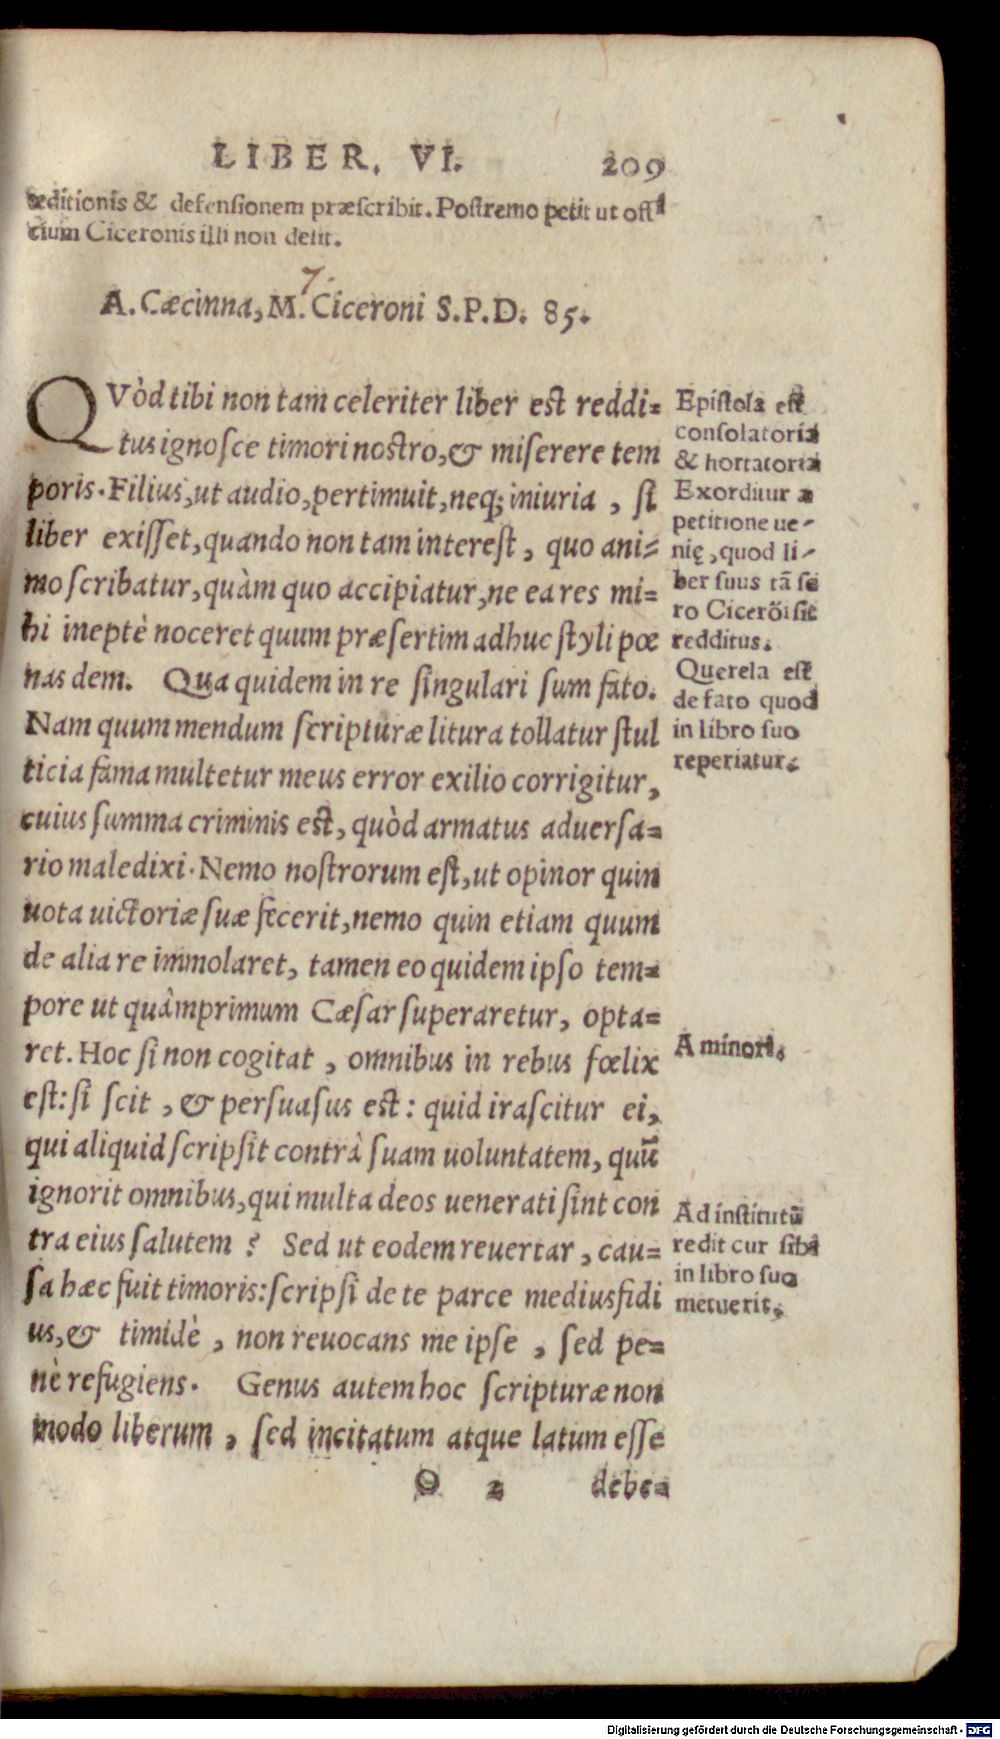 LIBER. VI. 209
æditionis & defensionem præscribit. Postremo petit ut offi
cium Ciceronis illi non desit.
7.
A. Cæcinna, M. Ciceroni S.P.D. 85.
QVòd tibi non tam celeriter liber est reddi=
tus ignosce timori nostro, & miserere tem
poris. Filius, ut audio, pertimuit, neq; iniuria, si
liber exisset, quando non tam interest, quo ani=
mo scribatur, quàm quo accipiatur, ne ea res mi=
hi ineptè noceret quum præsertim adhuc styli pœ
nas dem. Qua quidem in re singulari sum fato.
Nam quum mendum scripturæ litura tollatur stul
ticia fama multetur meus error exilio corrigitur,
cuius summa criminis est, quòd armatus aduersa=
rio maledixi. Nemo nostrorum est, ut opinor quin
uota uictoriæ suæ fecerit, nemo quin etiam quum
de alia re immolaret, tamen eo quidem ipso tem=
pore ut quàmprimum Cæsar superaretur, opta=
ret. Hoc si non cogitat, omnibus in rebus fœlix
est: si scit, & persuasus est: quid irascitur ei,
qui aliquid scripsit contrà suam uoluntatem, quũ
ignorit omnibus, qui multa deos uenerati sint con
tra eius salutem? Sed ut eodem reuertar, cau=
sa hæc fuit timoris: scripsi de te parce mediusfidi
us, & timidè, non reuocans me ipse, sed pe=
nè refugiens. Genus autem hoc scripturæ non
modo liberum, sed incitatum atque latum esse
O 2 debe=
Epistola est
consolatoria
& hortatoria
Exorditur a
petitione ue-
nię, quod li-
ber suus tã se
ro Cicerõi sit
redditus.
Querela est
de fato quod
in libro suo
reperiatur.
A minori.
Ad institutũ
redit cur sibi
in libro suo
metuerit.
Digitalisierung gefördert durch die Deutsche Forschungsgemeinschaft - DFG